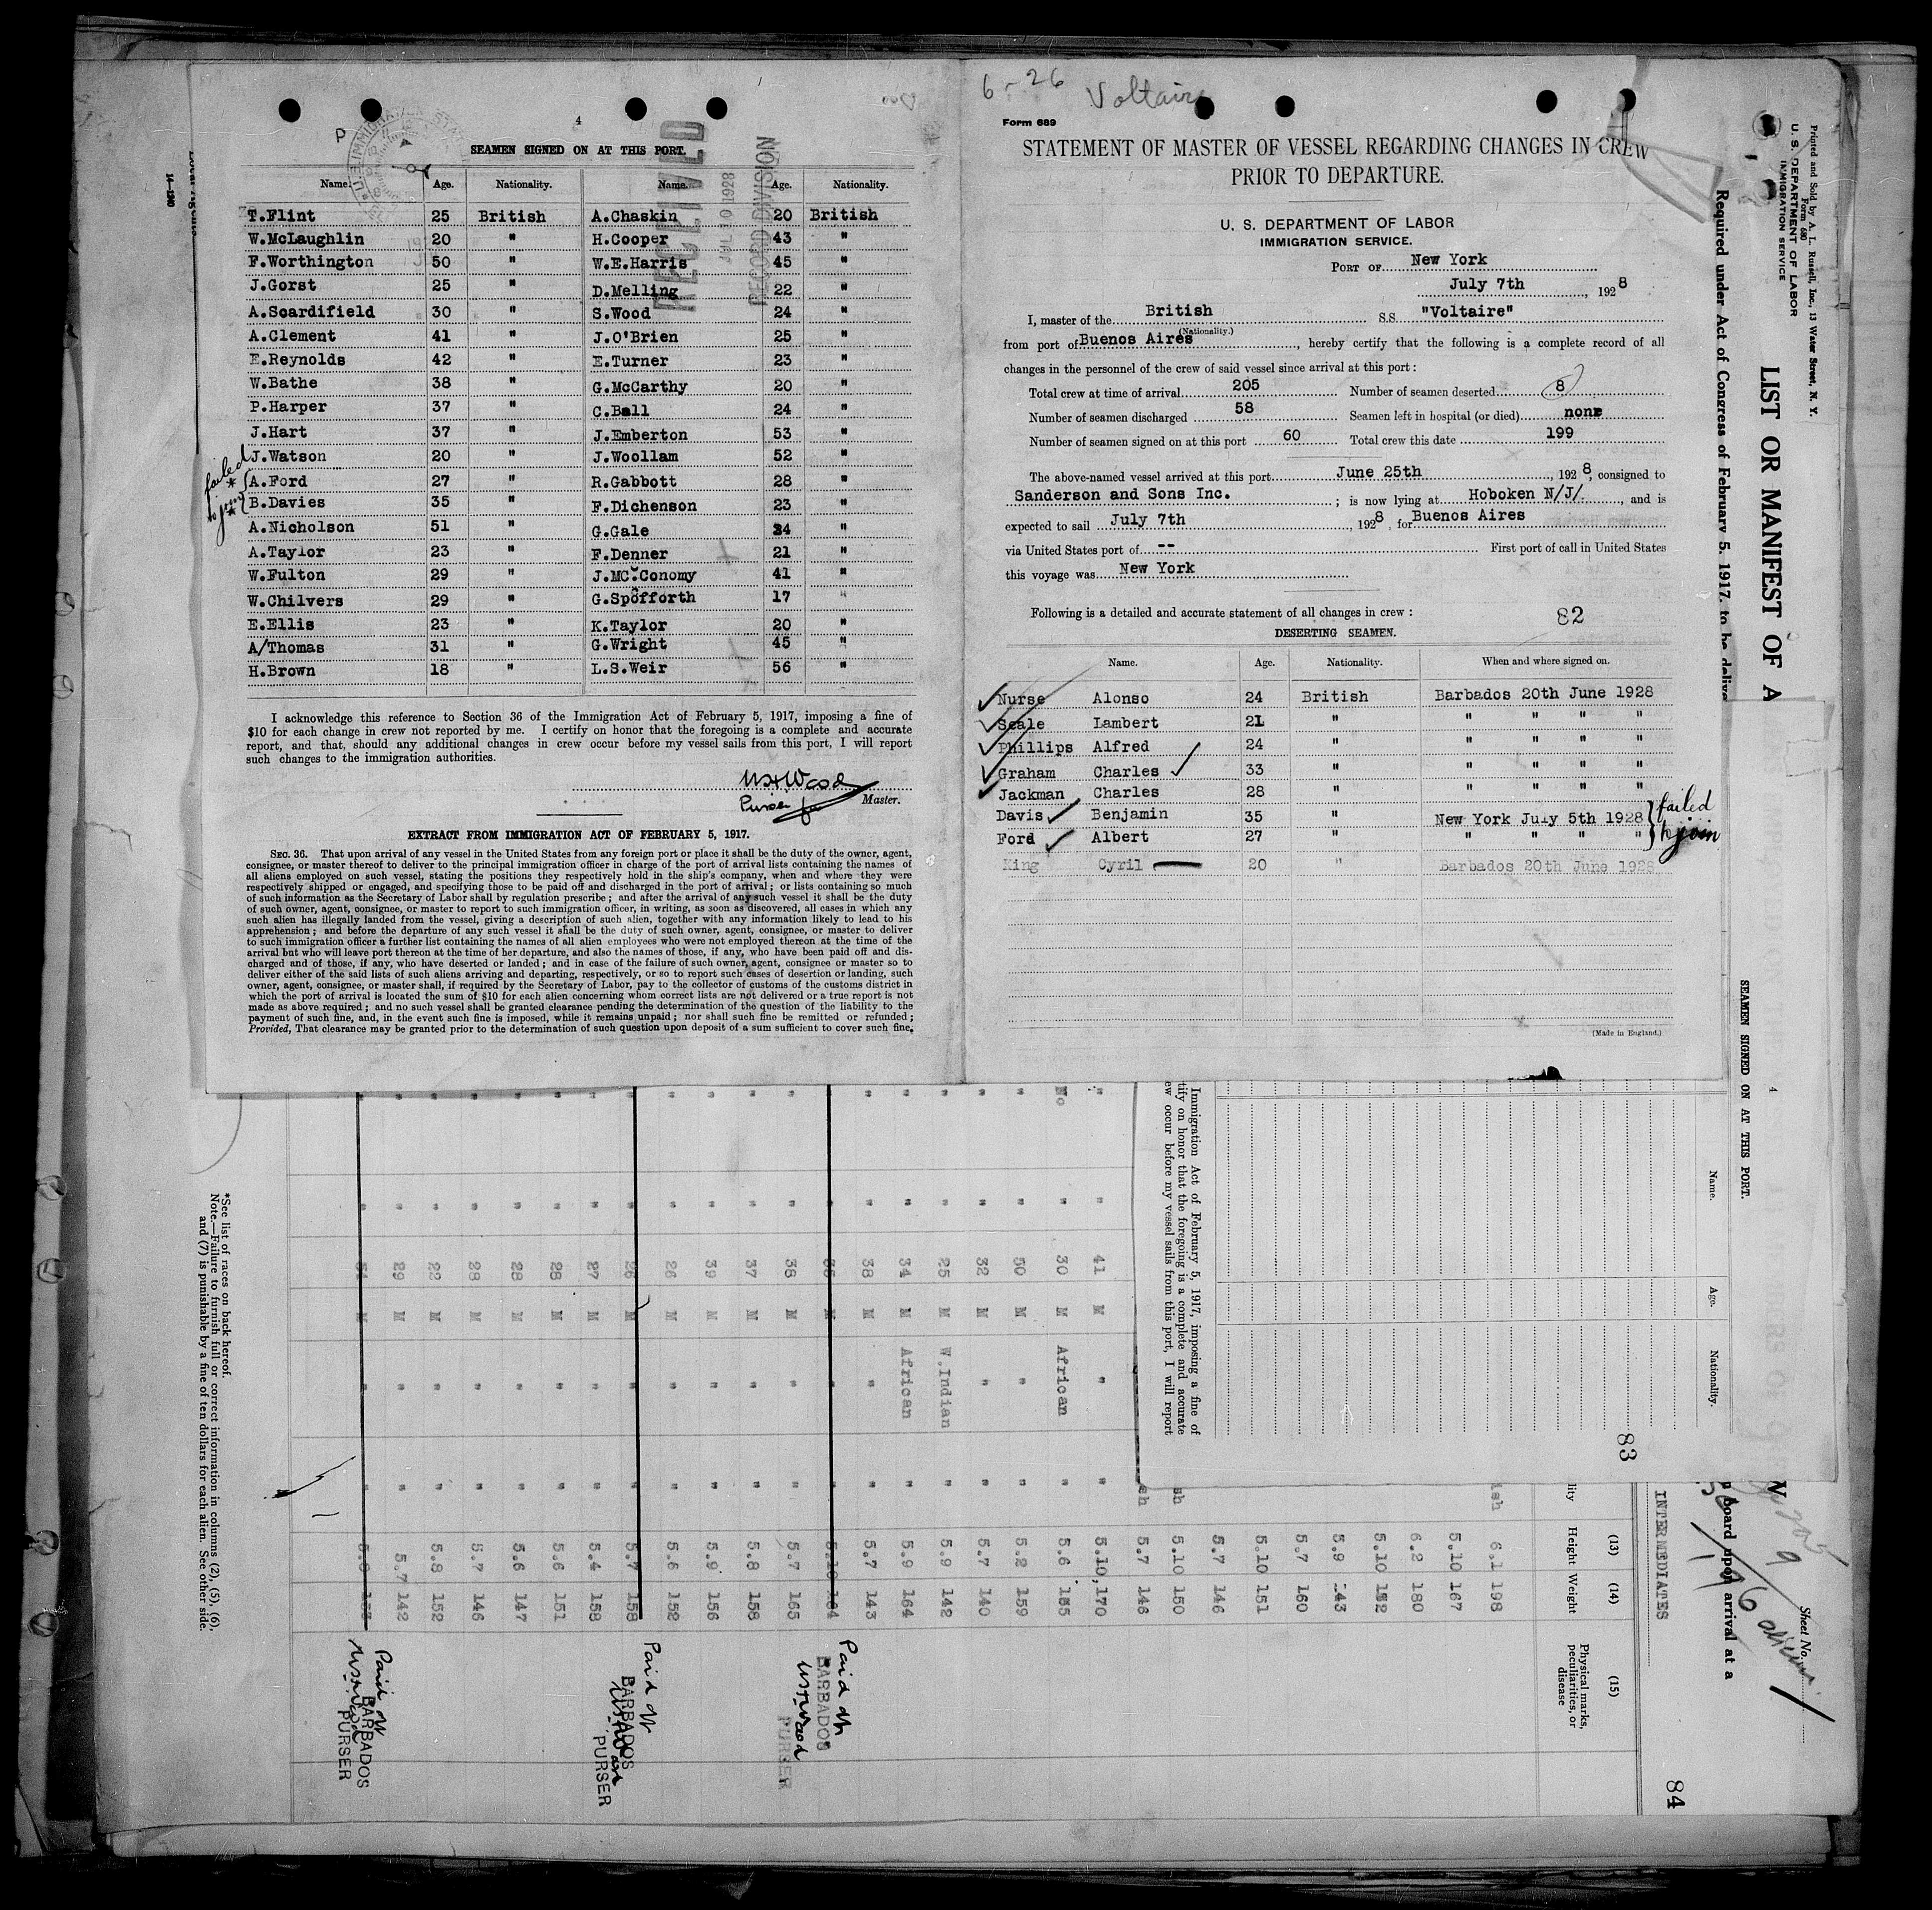 4
P
SEAMEN SIGNED ON AT THIS PORT.
RECEIVED
JUL 10 1928
RECORD DIVISION
Name. Age. Nationality. Name. Age. Nationality.
T.Flint 25 British A.Chaskin 20 British
W.McLaughlin 20 " H.Cooper 43 "
F.Worthington 50 " W.E.Harris 45 "
J.Gorst 25 " D.Melling 22 "
A.Scardifield 30 " S.Wood 24 "
A.Clement 41 " J.O'Brien 25 "
E.Reynolds 42 " E.Turner 23 "
W.Bathe 38 " G.McCarthy 20 "
P.Harper 37 " C.Ball 24 "
J.Hart 37 " J.Emberton 53 "
J.Watson 20 " J.Woollam 52 "
failed to join
* A.Ford 27 " R.Gabbott 28 "
* B.Davies 35 " F.Dichenson 23 "
A.Nicholson 51 " G.Gale 34 "
A.Taylor 23 " F.Denner 21 "
W.Fulton 29 " J.MC.Conomy 41 "
W.Chilvers 29 " G.Spofforth 17 "
E.Ellis 23 " K.Taylor 20 "
A/Thomas 31 " G.Wright 45 "
H.Brown 18 " L.S.Weir 56 "
I acknowledge this reference to Section 36 of the Immigration Act of February 5, 1917, imposing a fine of
$10 for each change in crew not reported by me. I certify on honor that the foregoing is a complete and accurate
report, and that, should any additional changes in crew occur before my vessel sails from this port, I will report
such changes to the immigration authorities.
Purser for Master.
EXTRACT FROM IMMIGRATION ACT OF FEBRUARY 5, 1917.
SEC. 36. That upon arrival of any vessel in the United States from any foreign port or place it shall be the duty of the owner, agent,
consignee, or master thereof to deliver to the principal immigration officer in charge of the port of arrival lists containing the names of
all aliens employed on such vessel, stating the positions they respectively hold in the ship's company, when and where they were
respectively shipped or engaged, and specifying those to be paid off and discharged in the port of arrival; or lists containing so much
of such information as the Secretary of Labor shall by regulation prescribe; and after the arrival of any such vessel it shall be the duty
of such owner, agent, consignee, or master to report to such immigration officer, in writing, as soon as discovered, all cases in which any
such alien has illegally landed from the vessel, giving a description of such alien, together with any information likely to lead to his
apprehension; and before the departure of any such vessel it shall be the duty of such owner, agent, consignee, or master to deliver
to such immigration officer a further list containing the names of all alien employees who were not employed thereon at the time of the
arrival but who will leave port thereon at the time of her departure, and also the names of those, if any, who have been paid off and dis-
charged and of those, if any, who have deserted or landed; and in case of the failure of such owner, agent, consignee or master so to
deliver either of the said lists of such aliens arriving and departing, respectively, or so to report such cases of desertion or landing, such
owner, agent, consignee, or master shall, if required by the Secretary of Labor, pay to the collector of customs of the customs district in
which the port of arrival is located the sum of $10 for each alien concerning whom correct lists are not delivered or a true report is not
made as above required; and no such vessel shall be granted clearance pending the determination of the question of the liability to the
payment of such fine, and, in the event such fine is imposed, while it remains unpaid; nor shall such fine be remitted or refunded;
Provided, That clearance may be granted prior to the determination of such question upon deposit of a sum sufficient to cover such fine.
14—1240
6-26 Voltaire
Form 689
STATEMENT OF MASTER OF VESSEL REGARDING CHANGES IN CREW
PRIOR TO DEPARTURE.
U. S. DEPARTMENT OF LABOR
IMMIGRATION SERVICE.
PORT OF New York
July 7th, 1928
I, master of the British S.S. "Voltaire"
(Nationality.)
from port of Buenos Aires, hereby certify that the following is a complete record of all
changes in the personnel of the crew of said vessel since arrival at this port:
Total crew at time of arrival 205 Number of seamen deserted 8
Number of seamen discharged 58 Seamen left in hospital (or died) none
Number of seamen signed on at this port 60 Total crew this date 199
The above-named vessel arrived at this port June 25th, 1928, consigned to
Sanderson and Sons Inc. ; is now lying at Hoboken N/J/. , and is
expected to sail July 7th, 1928, for Buenos Aires
via United States port of -- First port of call in United States
this voyage was New York
Following is a detailed and accurate statement of all changes in crew: 82
DESERTING SEAMEN.
Name. Age. Nationality. When and where signed on.
Nurse Alonso 24 British Barbados 20th June 1928
Seale Lambert 21 " " " " "
Phillips Alfred 24 " " " " "
Graham Charles 33 " " " " "
Jackman Charles 28 " " " " "
Davis Benjamin 35 " New York July 5th 1928 } failed
Ford Albert 27 " " " " " to join
King Cyril 20 " Barbados 20th June 1928
(Made in England.)
Printed and Sold by A. L. Russell, Inc., 13 Water Street, N. Y.
Form 680
U. S. DEPARTMENT OF LABOR
IMMIGRATION SERVICE
LIST OR MANIFEST OF A
Required under Act of Congress of February 5, 1917, to be delive
4
SEAMEN SIGNED ON AT THIS PORT.
Name. Age. Nationality.
Immigration Act of February 5, 1917, imposing a fine of
tify on honor that the foregoing is a complete and accurate
ew occur before my vessel sails from this port, I will report
83
Sheet No.
board upon arrival at a
INTERMEDIATES
84
(13) (14) (15)
lity Height Weight Physical marks, peculiarities, or disease
ish 6.1 198
5.10 167
6.2 180
5.10 152
5.9 143
5.7 160
5.10 151
5.7 146
sh 5.10 150
sh 5.7 146
" " 41 M " " 5.10 170
No " 30 M African " 5.6 155
" " 50 M " " 5.2 159
" " 32 M " " 5.7 140
" " 25 M W.Indian " 5.9 142
" " 34 M African " 5.9 164
" " 38 M " " 5.7 143
M 5.10 Paid off BARBADOS PURSER
" " 38 M " " 5.7 165
" " 37 M " " 5.8 158
" " 39 M " " 5.9 156
" " 26 M " " 5.6 152
" " 26 M " " 5.7 158 Paid off BARBADOS PURSER
" " 27 M " " 5.4 158
" " 28 M " " 5.6 151
" " 28 M " " 5.6 147
" " 28 M " " 5.7 146
" " 22 M " " 5.8 152
" " 29 M " " 5.7 142
M Paid off BARBADOS PURSER
*See list of races on back hereof.
Note.—Failure to furnish full or correct information in columns (2), (5), (6),
and (7) is punishable by a fine of ten dollars for each alien. See other side.